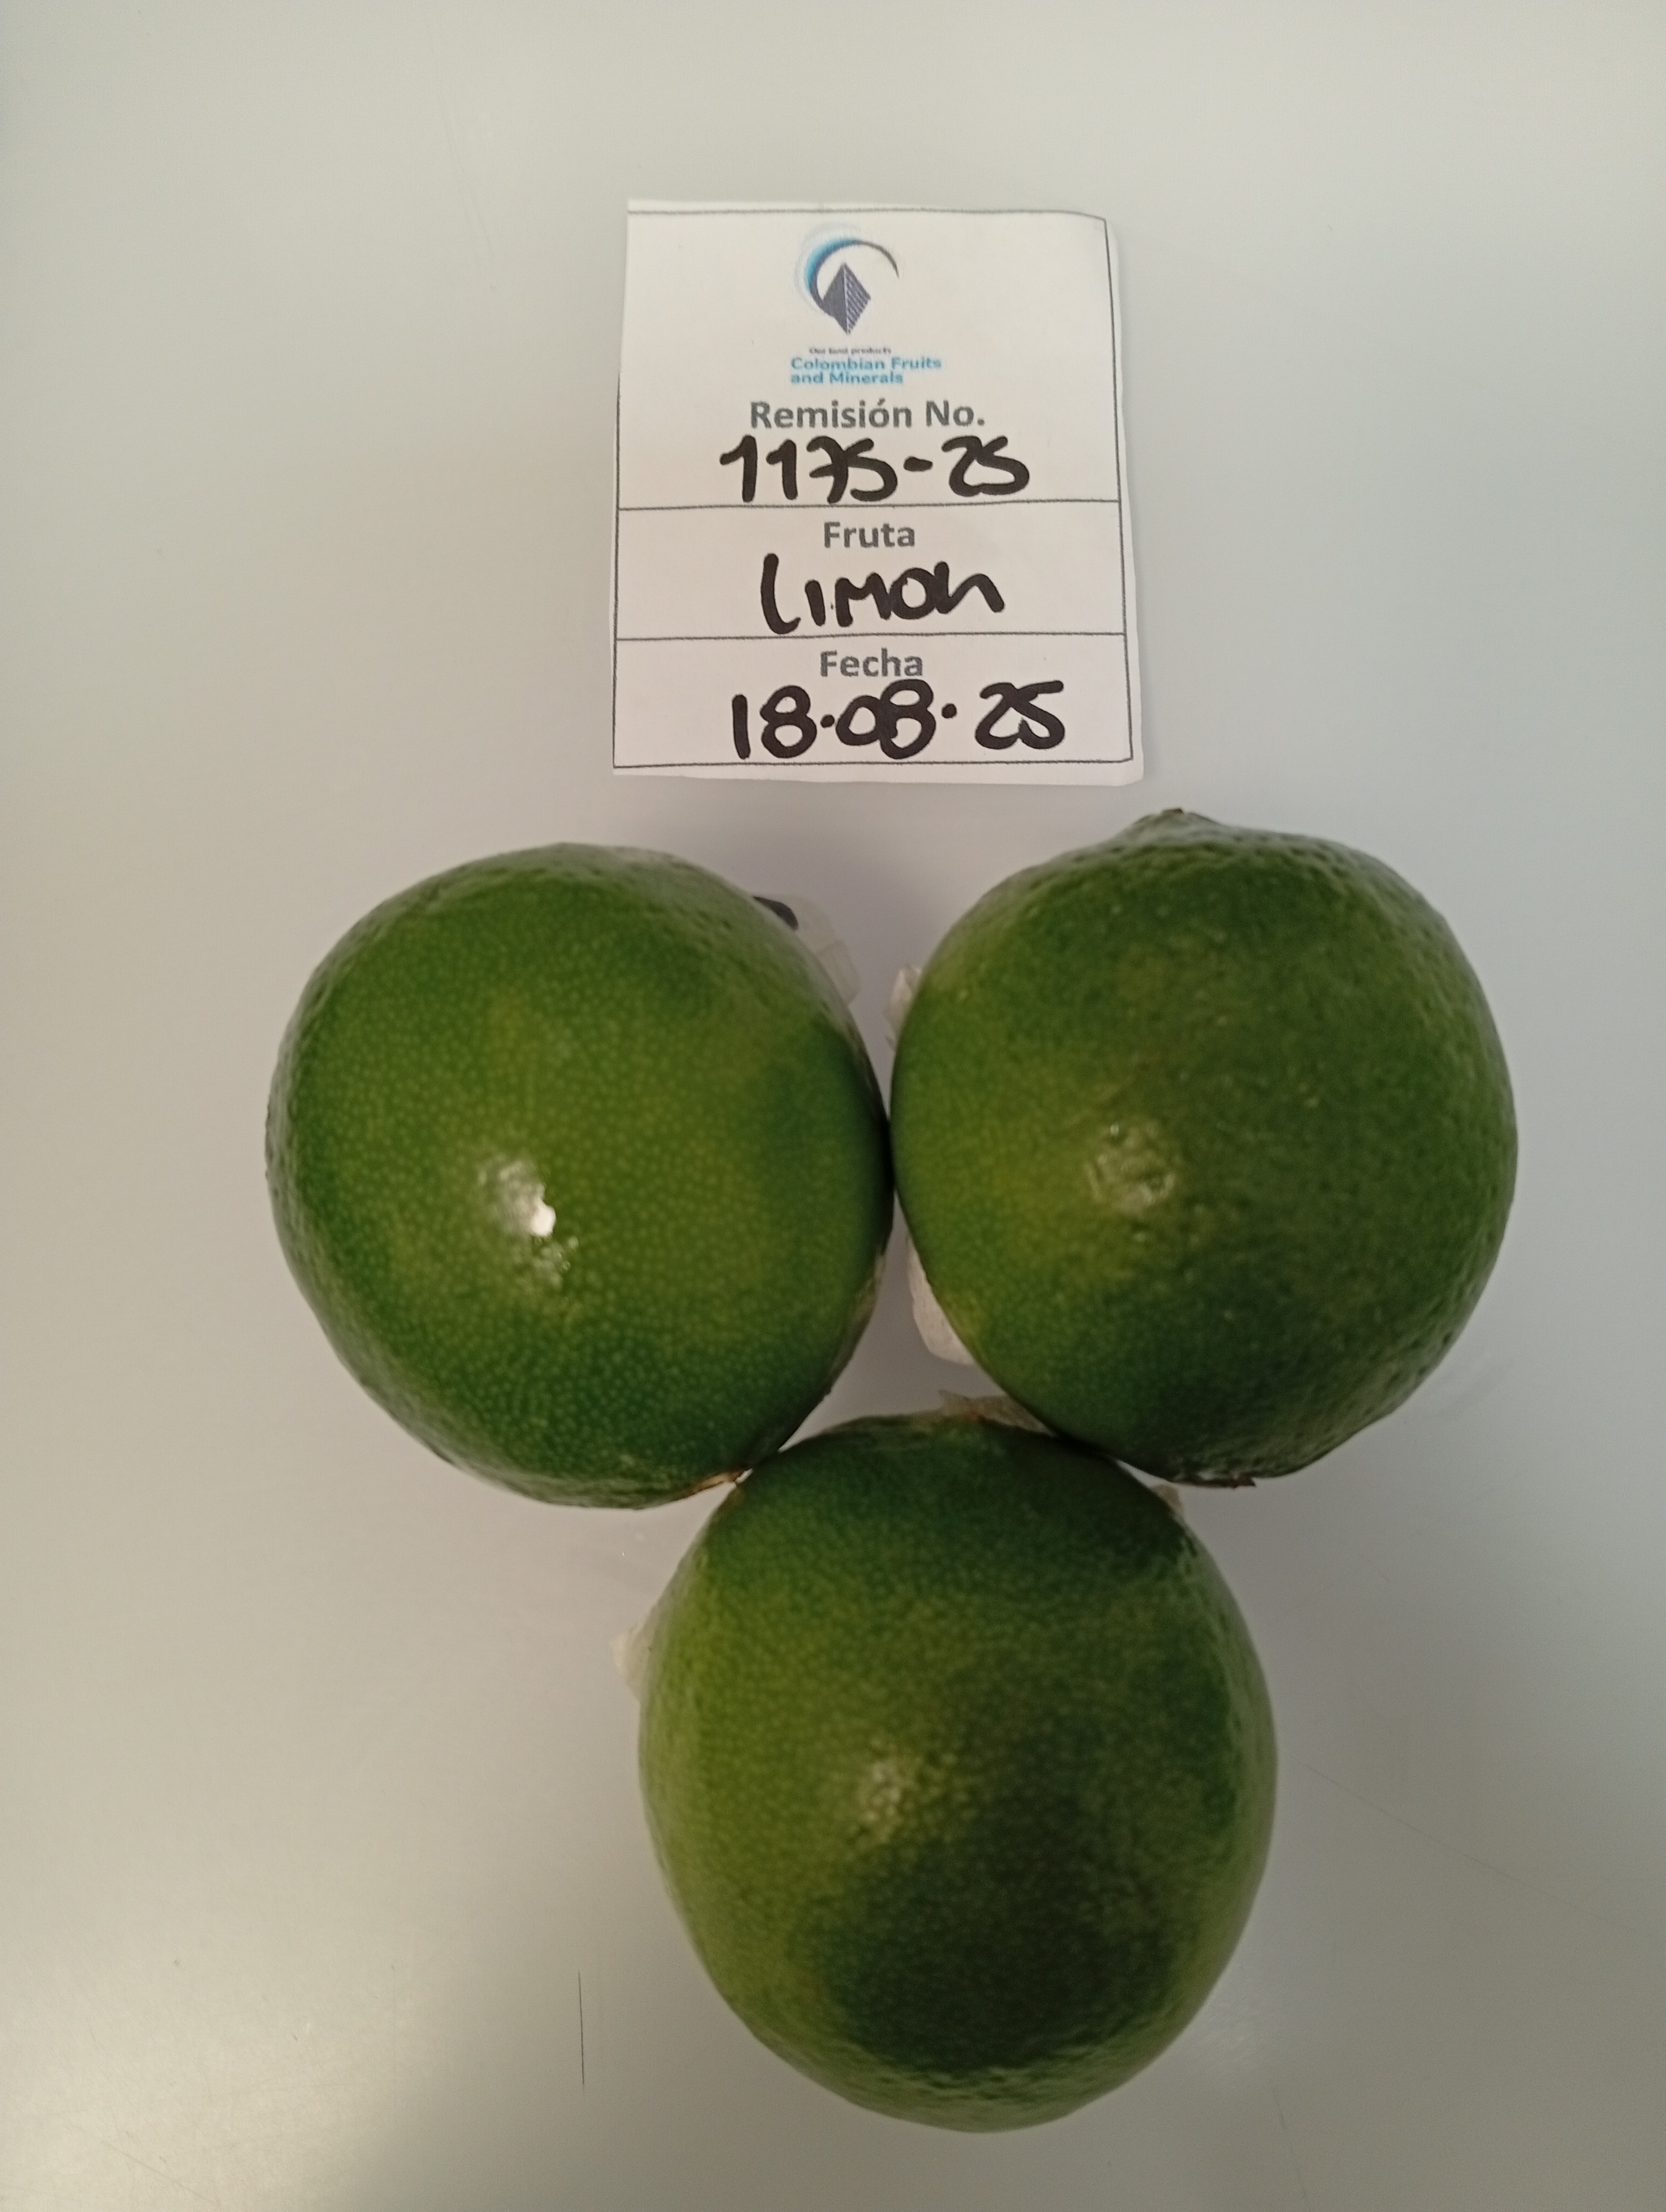 Our land products
Colombian Fruits
and Minerals
Remisión No.
1175-25
Fruta
Limon
Fecha
18.08.25